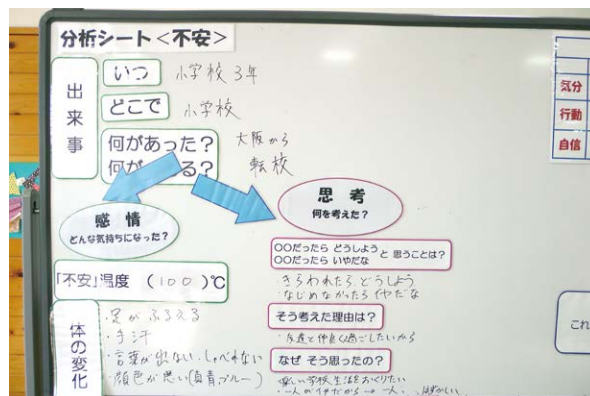 分析シート＜不安＞
出来事
いつ 小学校3年
どこで 小学校
何があった？ 大阪から
何が る？ 転校
感情
どんな気持ちになった？
「不安」温度 (100)℃
体の変化
・足がふるえる
・手汗
・言葉が出ない・しゃべれない
・顔色が悪い(真青ブルー)
思考
何を考えた？
○○だったら どうしよう
○○だったら いやだな
と 思うことは？
・きらわれたらどうしよう
・なじめなかったらイヤだな
そう考えた理由は？
・友達と仲良く過ごしたいから
なぜ そう思ったの？
楽しい学校生活をおくりたい
・一人がイヤだから→一人、はずかしい
気分
行動
自信
これ